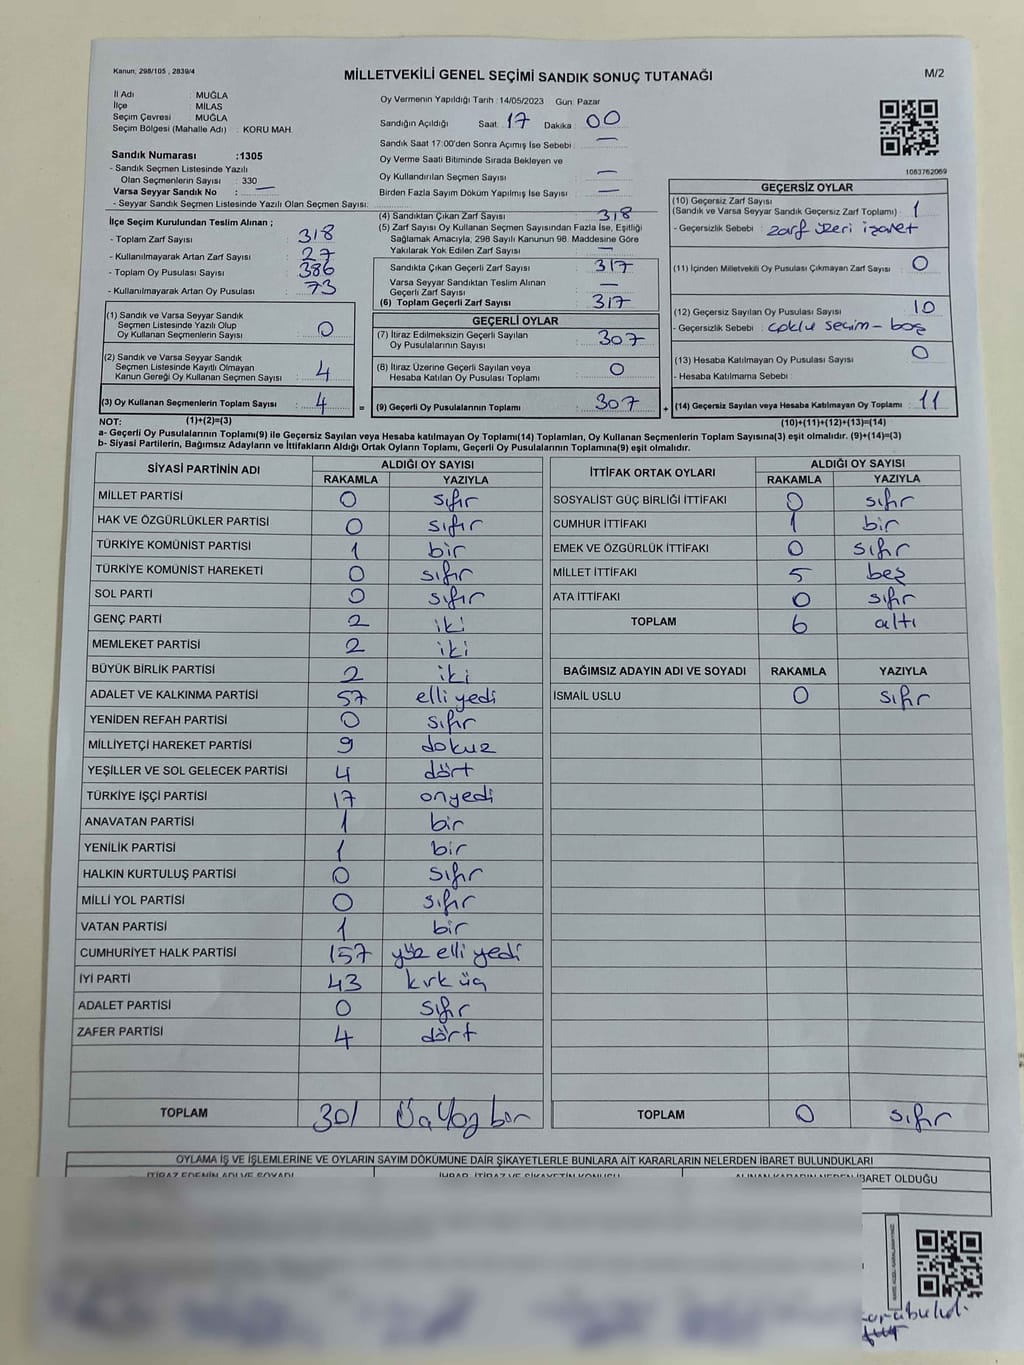 Kanun; 298/105 , 2839/4
MİLLETVEKİLİ GENEL SEÇİMİ SANDIK SONUÇ TUTANAĞI
M/2
İl Adı : MUĞLA
İlçe : MİLAS
Seçim Çevresi : MUĞLA
Seçim Bölgesi (Mahalle Adı) : KORU MAH.
Sandık Numarası :1305
- Sandık Seçmen Listesinde Yazılı
Olan Seçmenlerin Sayısı : 330
Varsa Seyyar Sandık No : —
- Seyyar Sandık Seçmen Listesinde Yazılı Olan Seçmen Sayısı:
Oy Vermenin Yapıldığı Tarih :14/05/2023 Gün: Pazar
Sandığın Açıldığı Saat: 17 Dakika : 00
Sandık Saat 17:00'den Sonra Açımış İse Sebebi : —
Oy Verme Saati Bitiminde Sırada Bekleyen ve
Oy Kullandırılan Seçmen Sayısı : —
Birden Fazla Sayım Döküm Yapılmış İse Sayısı : —
1083762069
İlçe Seçim Kurulundan Teslim Alınan ;
- Toplam Zarf Sayısı : 318
- Kullanılmayarak Artan Zarf Sayısı : 27
- Toplam Oy Pusulası Sayısı : 386
- Kullanılmayarak Artan Oy Pusulası : 73
(1) Sandık ve Varsa Seyyar Sandık
Seçmen Listesinde Yazılı Olup
Oy Kullanan Seçmenlerin Sayısı : 0
(2) Sandık ve Varsa Seyyar Sandık
Seçmen Listesinde Kayıtlı Olmayan
Kanun Gereği Oy Kullanan Seçmen Sayısı : 4
(3) Oy Kullanan Seçmenlerin Toplam Sayısı : 4 =
(1)+(2)=(3)
(4) Sandıktan Çıkan Zarf Sayısı : 318
(5) Zarf Sayısı Oy Kullanan Seçmen Sayısından Fazla İse, Eşitliği
Sağlamak Amacıyla; 298 Sayılı Kanunun 98. Maddesine Göre
Yakılarak Yok Edilen Zarf Sayısı : —
Sandıkta Çıkan Geçerli Zarf Sayısı : 317
Varsa Seyyar Sandıktan Teslim Alınan
Geçerli Zarf Sayısı : —
(6) Toplam Geçerli Zarf Sayısı : 317
GEÇERLİ OYLAR
(7) İtiraz Edilmeksizin Geçerli Sayılan
Oy Pusulalarının Sayısı : 307
(8) İtiraz Üzerine Geçerli Sayılan veya
Hesaba Katılan Oy Pusulası Toplamı : 0
(9) Geçerli Oy Pusulalarının Toplamı : 307 +
GEÇERSİZ OYLAR
(10) Geçersiz Zarf Sayısı
(Sandık ve Varsa Seyyar Sandık Geçersiz Zarf Toplamı) : 1
- Geçersizlik Sebebi : zarf üzeri işaret
(11) İçinden Milletvekili Oy Pusulası Çıkmayan Zarf Sayısı : 0
(12) Geçersiz Sayılan Oy Pusulası Sayısı : 10
- Geçersizlik Sebebi : çoklu seçim - boş
(13) Hesaba Katılmayan Oy Pusulası Sayısı : 0
- Hesaba Katılmama Sebebi :
(14) Geçersiz Sayılan veya Hesaba Katılmayan Oy Toplamı : 11
(10)+(11)+(12)+(13)=(14)
NOT:
a- Geçerli Oy Pusulalarının Toplamı(9) ile Geçersiz Sayılan veya Hesaba katılmayan Oy Toplamı(14) Toplamları, Oy Kullanan Seçmenlerin Toplam Sayısına(3) eşit olmalıdır. (9)+(14)=(3)
b- Siyasi Partilerin, Bağımsız Adayların ve İttifakların Aldığı Ortak Oyların Toplamı, Geçerli Oy Pusulalarının Toplamına(9) eşit olmalıdır.
SİYASİ PARTİNİN ADI ALDIĞI OY SAYISI
RAKAMLA YAZIYLA
MİLLET PARTİSİ 0 sıfır
HAK VE ÖZGÜRLÜKLER PARTİSİ 0 sıfır
TÜRKİYE KOMÜNİST PARTİSİ 1 bir
TÜRKİYE KOMÜNİST HAREKETİ 0 sıfır
SOL PARTİ 0 sıfır
GENÇ PARTİ 2 iki
MEMLEKET PARTİSİ 2 iki
BÜYÜK BİRLİK PARTİSİ 2 iki
ADALET VE KALKINMA PARTİSİ 57 elli yedi
YENİDEN REFAH PARTİSİ 0 sıfır
MİLLİYETÇİ HAREKET PARTİSİ 9 dokuz
YEŞİLLER VE SOL GELECEK PARTİSİ 4 dört
TÜRKİYE İŞÇİ PARTİSİ 17 onyedi
ANAVATAN PARTİSİ 1 bir
YENİLİK PARTİSİ 1 bir
HALKIN KURTULUŞ PARTİSİ 0 sıfır
MİLLİ YOL PARTİSİ 0 sıfır
VATAN PARTİSİ 1 bir
CUMHURİYET HALK PARTİSİ 157 yüz elli yedi
İYİ PARTİ 43 kırk üç
ADALET PARTİSİ 0 sıfır
ZAFER PARTİSİ 4 dört
TOPLAM 301
İTTİFAK ORTAK OYLARI ALDIĞI OY SAYISI
RAKAMLA YAZIYLA
SOSYALİST GÜÇ BİRLİĞİ İTTİFAKI 0 sıfır
CUMHUR İTTİFAKI 1 bir
EMEK VE ÖZGÜRLÜK İTTİFAKI 0 sıfır
MİLLET İTTİFAKI 5 beş
ATA İTTİFAKI 0 sıfır
TOPLAM 6 altı
BAĞIMSIZ ADAYIN ADI VE SOYADI RAKAMLA YAZIYLA
İSMAİL USLU 0 sıfır
TOPLAM 0 sıfır
OYLAMA İŞ VE İŞLEMLERİNE VE OYLARIN SAYIM DÖKÜMÜNE DAİR ŞİKAYETLERLE BUNLARA AİT KARARLARIN NELERDEN İBARET BULUNDUKLARI
İTİRAZ EDENİN ADI VE SOYADI İHBAR, İTİRAZ VE ŞİKAYETİN KONUSU ALINAN KARARIN NEDEN İBARET OLDUĞU